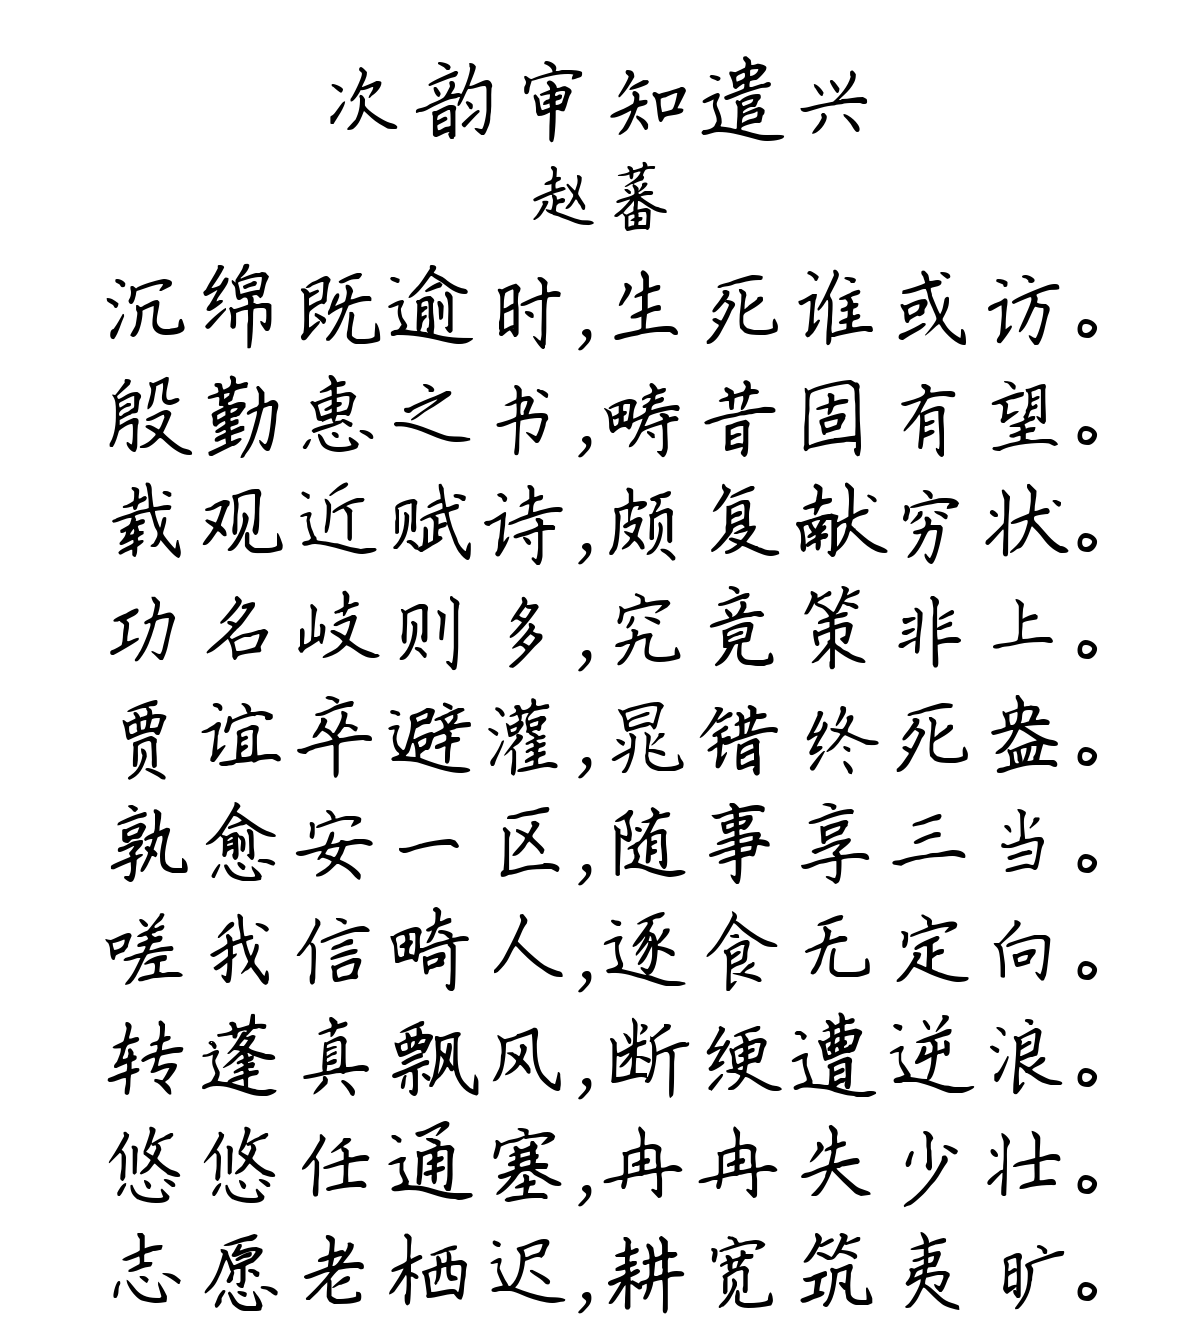 次韵审知遣兴
赵蕃
沉绵既逾时,生死谁或访。
殷勤惠之书,畴昔固有望。
载观近赋诗,颇复献穷状。
功名岐则多,究竟策非上。
贾谊卒避灌,晁错终死盎。
孰愈安一区,随事享三当。
嗟我信畸人,逐食无定向。
转蓬真飘风,断绠遭逆浪。
悠悠任通塞,冉冉失少壮。
志愿老栖迟,耕宽筑夷旷。